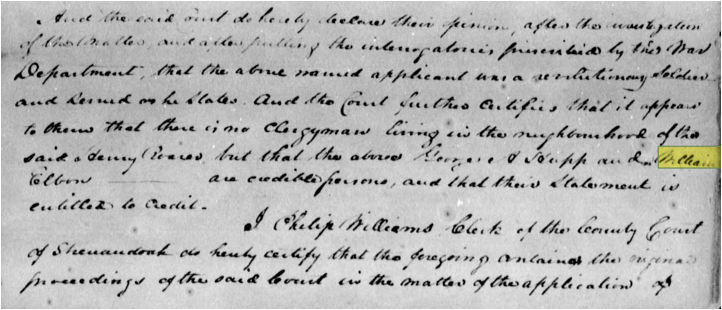 And the said Court do hereby declare their opinion, after the investigation
of the Matter, and after putting the interrogatories prescribed by the War
Department, that the above named applicant was a revolutionary Soldier
and Served as he States. And the Court further certifies that it appears
to them that there is no Clergyman living in the neighbourhood of the
said Henry but that the above George A Hupp and William
Elbon are credible persons, and that their Statement is
entitled to Credit.
I Philip Williams Clerk of the County Court
of Shenandoah do hereby certify that the foregoing contains the original
proceedings of the said Court in the matter of the application of